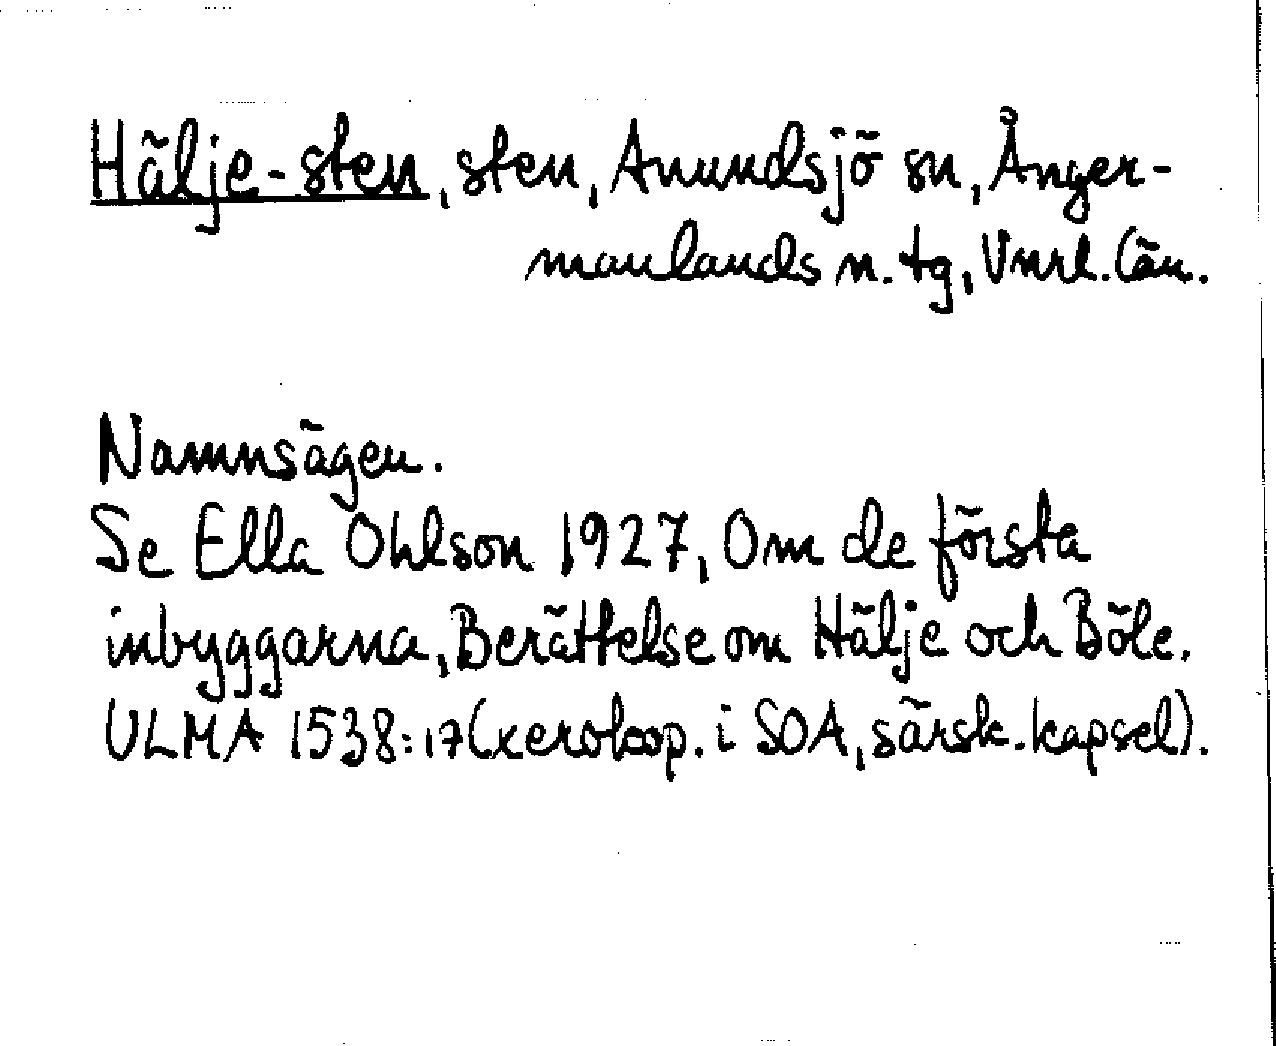 Hälje-sten, sten, Anundsjö sn, Ånger-
manlands n. tg, Vnrl. län.
Namnsägen.
Se Ella Ohlson 1927, Om de första
inbyggarna, Berättelse om Hälje och Böle.
ULMA 1538:17 (xerokop. i SOA, särsk. kapsel).